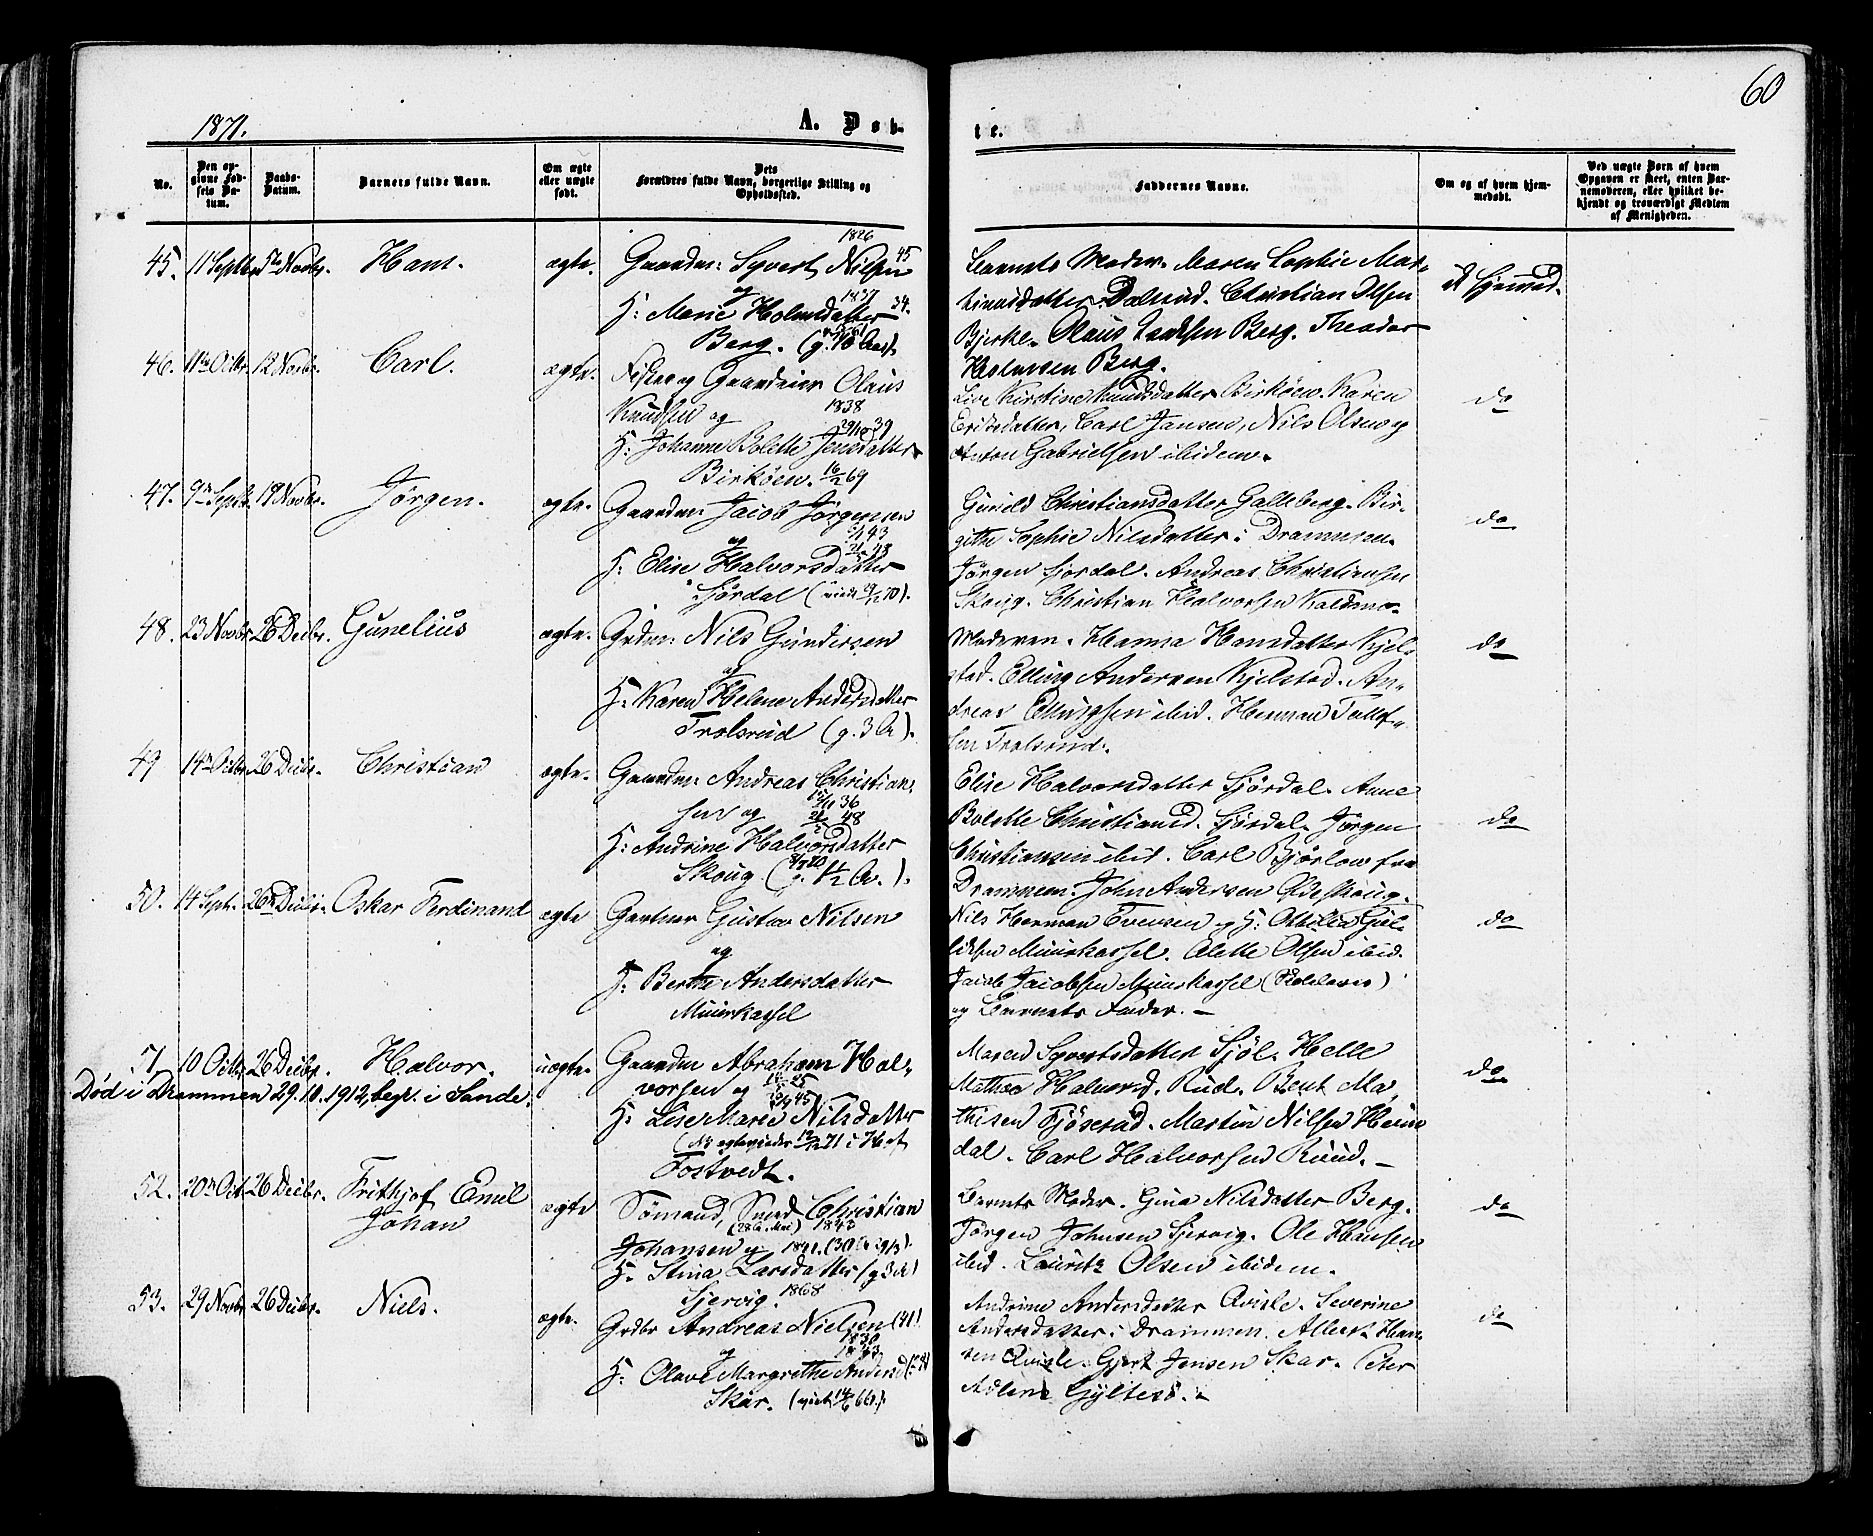 60
1871.
A. Døb-
te.
No.
Den op-
givne Fød-
sels Da-
tum.
Daabs-
Datum.
Barnets fulde Navn.
Om ægte
eller uægte
født.
Dets
Forældres fulde Navn, borgerlige Stilling og
Opholdssted.
Faddernes Navne.
Om og af hvem hjem-
medøbt.
Ved uægte Børn af hvem
Opgaven er skeet, enten Bar-
nemoderen, eller hvilket be-
kjendt og troværdigt Medlem
af Menigheden.
45. 11 Septbr 5te Novbr. Hans. ægte.
1826
Gaardm: Syvert Nielsen 45
og 1837
H: Marie Holmsdatter 34.
Berg. (g. 16 Aar).
Barnets Moder. Maren Sophie Mar-
tinusdatter Dalsrud. Christian Olsen
Bjerke. Olaus Berg. Theodor
Berg.
46. 11te Octbr. 12 Novbr. Carl. ægte.
og Gaardeier Olaus
Knudsen og 1838
29/10 39
H: Johanne Bolette Jensdatter
Birköen. 16/2 69
Live Kirstine Knudsdatter Birköen. Karen
Eriksdatter, Carl Jansen, Nils Olsen og
Anton Gabrielsen ibidem.
do
47. 9de Septbr. 19 Novbr. Jørgen. ægte.
Gaardm: Jacob Jørgensen
og 43
48
H: Elise Halvorsdatter
Sjørdal (viede 29/12 70).
Gunild Christiansdatter Galleberg. Bir-
githe Sophie Nilsdatter i Drammen.
Jørgen Sjørdal. Andreas Christiansen
Skoug. Christian Halvorsen
do
48. 23 Novbr 26 Decbr. Gunelius ægte.
Grdm: Nils Gundersen
og
H: Karen Helene Andersdatter
Trolsrud (g. 3 A).
Moderen. Hanna Hansdatter Kjel-
stad. Elling Andersen Kjelstad. An-
dreas Ellingsen ibid. Herman Tollef-
sen Trolsrud.
do
49 14de Octbr. 26 Decbr. Christian ægte.
Gaardm: Andreas Christian-
sen og 36
48
H: Andrine Halvorsdatter
Skoug. (g. 1 1/2 A.).
Elise Halvorsdatter Sjørdal. Anne
Bolette Christiansd. Sjørdal. Jørgen
Christiansen ibid. Carl Bjørlow fra
Drammen. John Andersen Skoug.
do
50. 14 Septr. 26de Decbr. Oskar Ferdinand ægte
Gartner Gustav Nilsen
og
H: Berthe Andersdatter
Muurkassel
Nils Herman Evensen og H: Ottilia Gul-
liksen Muurkassel. Alette Olsen ibid.
Jacob Jacobsen Muurkassel
og Barnets Fader. —
do
51. 10 Octbr 26 Decbr. Halvor. uægte.
Død i Drammen 29.10.1912, begr. i Sande.
Gaardm Abraham Hal-
vorsen og 45
45
H: Lise Marie Nilsdatter
(No ægteviede 12/12 71 i Hof
Tostvedt.
Maren Syvertsdatter Sjøl. Helle
Mathea Halvorsd. Rud. Bent Ma-
thisen Fjøserud. Martin Nilsen Heim-
dal. Carl Halvorsen Ruud. —
do
52. 20de Oct. 26 Decbr. Frithjof Emil
Johan ægte
Sömand, Christian
1843
Johansen og
H: Stina Larsdatter (g 3 A)
Sjervig. 1868
Barnets Moder. Gina Nilsdatter Berg.
Jörgen Johnsen Sjervig. Ole Hansen
ibid. Lauritz Olsen ibidem.
do
53. 29 Novbr 26 Decbr. Niels. ægte.
Grdbr Andreas Nielsen (41)
og 1830
H: Olave Margrethe Andersd
Skar. (viede 14/6 66).
Andrine Andersdatter Qvisle. Severine
Andersdatter i Drammen. Albert Han-
sen Qvisle. Gjert Jensen Skar. Peter
Adlene Gyltesö. —
do